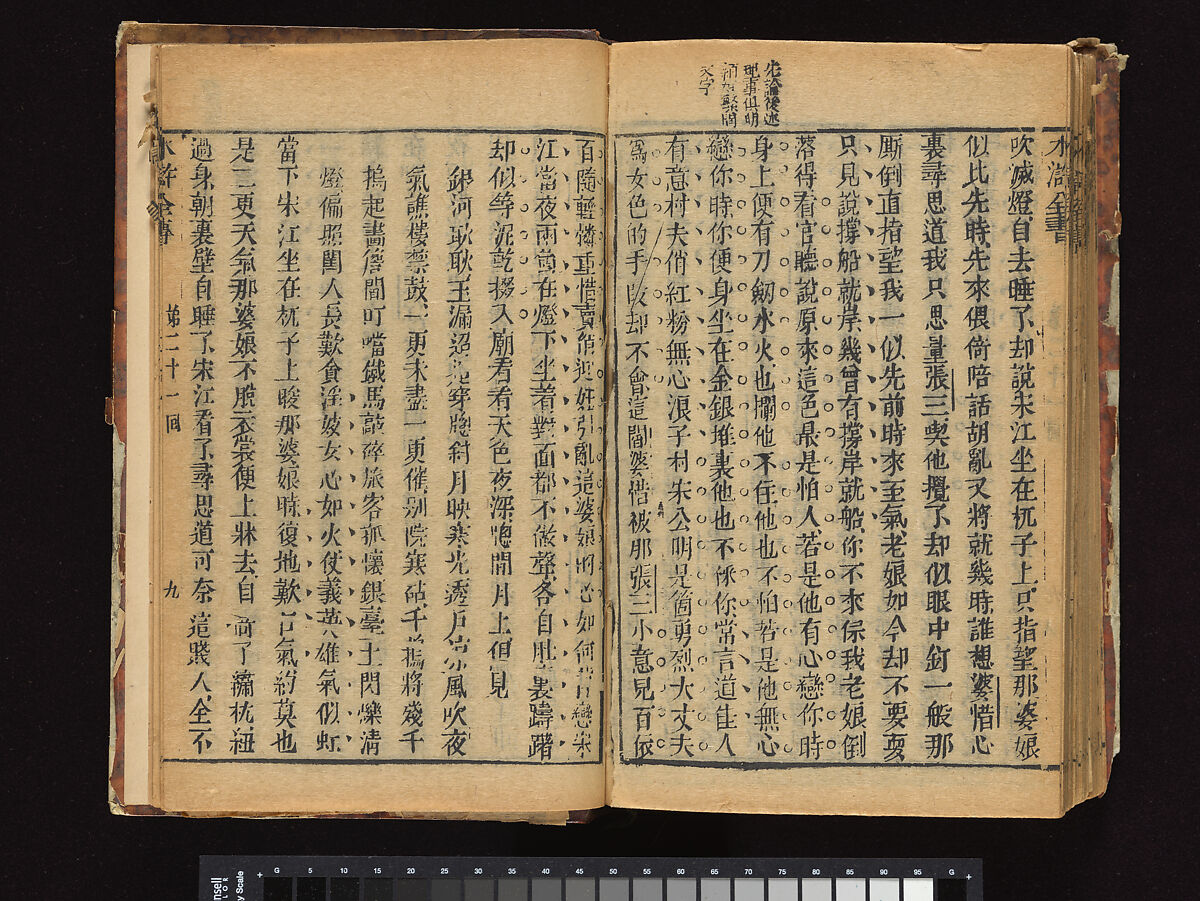 先論後述
理事俱明
文字
水滸全書
吹滅燈自去睡了却說宋江坐在杌子上只指望那婆娘
似比先時先來偎倚陪話胡亂又將就幾時誰想婆惜心
裏尋思道我只思量張三喫他攪了却似眼中釘一般那
厮倒直指望我一似先前時來至氣老娘如今却不要耍
只見說撐船就岸幾曾有撐岸就船你不來倸我老娘倒
落得看官聽說原來這色最是怕人若是他有心戀你時
身上便有刀劒水火也攔他不住他也不怕若是他無心
戀你時你便身坐在金銀堆裏他也不倸你常言道佳人
有意村夫俏紅粉無心浪子村宋公明是箇勇烈大丈夫
爲女色的手段却不會這閻婆惜被那張三小意兒百依
百隨輕憐重惜賣俏迎奸引亂這婆娘的心如何肯戀宋
江當夜兩箇在燈下坐着對面都不做聲各自肚裏躊躇
却似等泥乾掇入廟看看天色夜深窻間月上但見
銀河耿耿玉漏迢迢穿窻斜月映寒光透戶凉風吹夜
氣譙樓禁鼓一更未盡一更催別院寒砧千搗將殘千
搗起畵簷間叮噹鐵馬敲碎旅客孤懷銀臺上閃爍清
燈偏照閨人長歎貪淫妓女心如火仗義英雄氣似虹
當下宋江坐在杌子上睃那婆娘時復地歎口氣約莫也
是二更天氣那婆娘不脫衣裳便上牀去自 了繡枕紐
過身朝裏壁自睡了宋江看了尋思道可奈這賤人全不
水滸全書
第二十一回
九
G 5 10 15 20 25 30 35 40 45 50 55 60 65 70 75 80 85 90 95 G
Scale